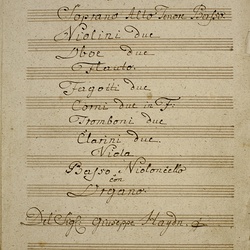 Soprano Alto Tenor Basso
Violini due
Oboe due
Flauto
Fagotti due
Corni due in F.
Tromboni due
Clarini due
Viola
Basso e Violoncello
con
Organo
Del Sigl. Giuseppe Haydn